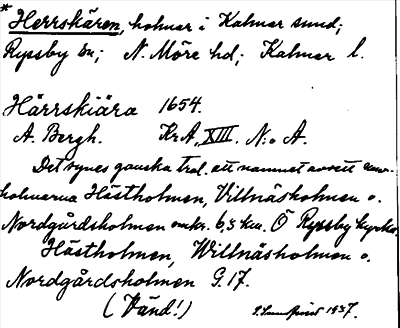 * Herrskären, holmar i Kalmar sund;
Ryssby sn; N. Möre hd; Kalmar l.
Härrskiära 1654.
A. Bergh. KrA, XIII. N:o A.
Det synes ganska trol. att namnet avsett
holmarna Hästholmen, Villnäsholmen o.
Nordgårdsholmen omkr. 6,5 km. Ö Ryssby kyrka.
Hästholmen, Willnäsholmen o.
Nordgårdsholmen G. 17.
(Vänd!) 1937.